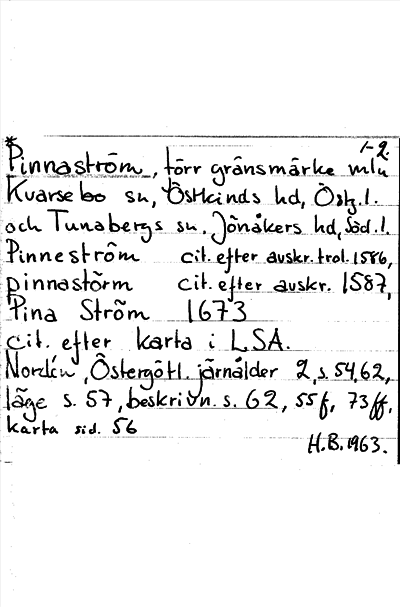 1-2.
*Pinnaström, förr gränsmärke mln
Kvarsebo sn, Östkinds hd, Östg.l.
och Tunabergs sn. Jönåkers hd, Söd.l.
Pinneström cit. efter avskr. trol. 1586,
pinnastörm cit. efter avskr. 1587,
Pina Ström 1673
cit. efter karta i LSA.
Nordén, Östergötl. järnålder 2, s. 54, 62,
läge s. 57, beskrivn. s. 62, 55 f, 73 ff,
karta sid. 56
H.B. 1963.